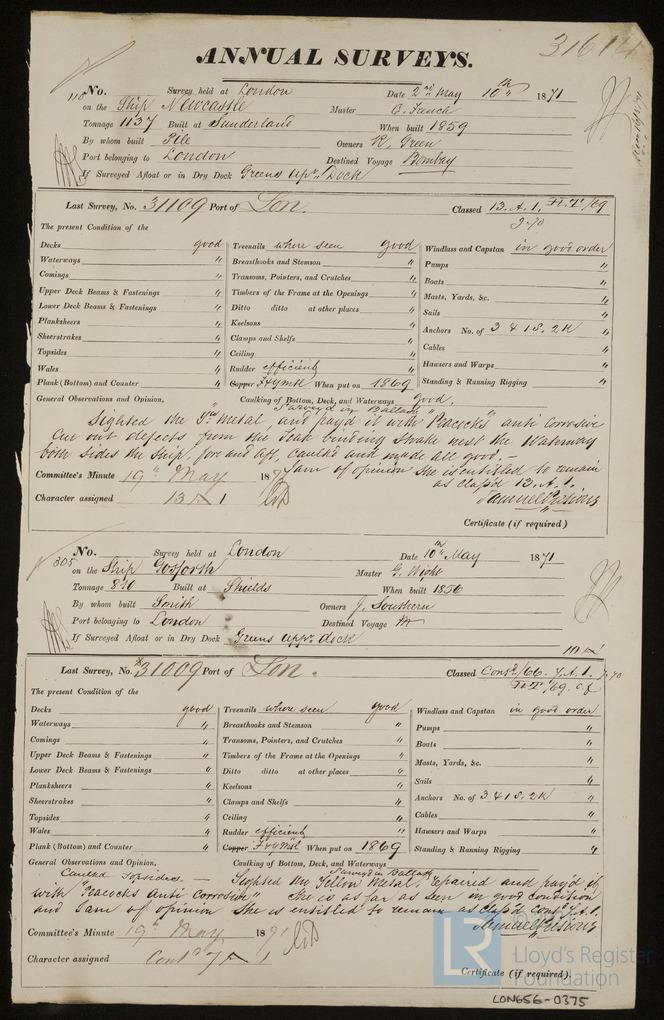 ANNUAL SURVEYS.
31614
110 No. Survey held at London Date 2nd May 10th 1871
on the Ship Newcastle Master C. Taneh
Tonnage 1137 Built at Sunderland When built 1859
By whom built Pile Owners R. Green
Port belonging to London Destined Voyage Bombay
If Surveyed Afloat or in Dry Dock Greens Upr Dock
Last Survey, No. 31109 Port of Lon. Classed 13. A. 1. H.T/69
3.70
The present Condition of the
Decks good Treenails where seen good Windlass and Capstan in good order
Waterways " Breasthooks and Stemson " Pumps "
Comings " Transoms, Pointers, and Crutches " Boats "
Upper Deck Beams & Fastenings " Timbers of the Frame at the Openings " Masts, Yards, &c. "
Lower Deck Beams & Fastenings " Ditto ditto at other places " Sails "
Planksheers " Keelsons " Anchors No. of 3 & 1 S. 2 K "
Sheerstrakes " Clamps and Shelfs " Cables "
Topsides " Ceiling " Hawsers and Warps "
Wales " Rudder efficient Standing & Running Rigging "
Plank (Bottom) and Counter " Copper F & Y Mtl When put on 1869
General Observations and Opinion, Caulking of Bottom, Deck, and Waterways good.
Surveyd in Ballast
Sighted the Y. metal, and payd it with "Peacock's" anti corrosive
Cut out defects from the Teak binding strake next the Waterway
both sides the Ship, fore and aft, caulkd and made all good. —
I am of opinion she is entitled to remain
as classd 13. A. 1.
Committee's Minute 19th May 1871
Character assigned 13 A 1
Certificate (if required)
305 No. Survey held at London Date 10th May 1871
on the Ship Gosforth Master G. Wight
Tonnage 810 Built at Shields When built 1856
By whom built Smith Owners J. Southern
Port belonging to London Destined Voyage
If Surveyed Afloat or in Dry Dock Greens uppr dock
Last Survey, No. 31009 Port of Lon. Classed Contd/66. 7. A. 1. 7.70
H.T/69. c.f
The present Condition of the
Decks good Treenails where seen good Windlass and Capstan in good order
Waterways " Breasthooks and Stemson " Pumps "
Comings " Transoms, Pointers, and Crutches " Boats "
Upper Deck Beams & Fastenings " Timbers of the Frame at the Openings " Masts, Yards, &c. "
Lower Deck Beams & Fastenings " Ditto ditto at other places " Sails "
Planksheers " Keelsons " Anchors No. of 3 & 1 S. 2 K "
Sheerstrakes " Clamps and Shelfs " Cables "
Topsides " Ceiling " Hawsers and Warps "
Wales " Rudder efficient " Standing & Running Rigging "
Plank (Bottom) and Counter " Copper F & Y Mtl When put on 1869
General Observations and Opinion, Caulking of Bottom, Deck, and Waterways
Surveyd in Ballast
Caulkd Topsides. — Sighted the Yellow Metal, repaired and payd it
with "Peacocks Anti Corrosion". She is as far as seen in good condition
and I am of opinion she is entitled to remain as classd Contd 7. A. 1.
Committee's Minute 19th May 1871
Character assigned Contd 7 A 1
Certificate (if required).
LR
Lloyd's Register
Foundation
LON656-0375